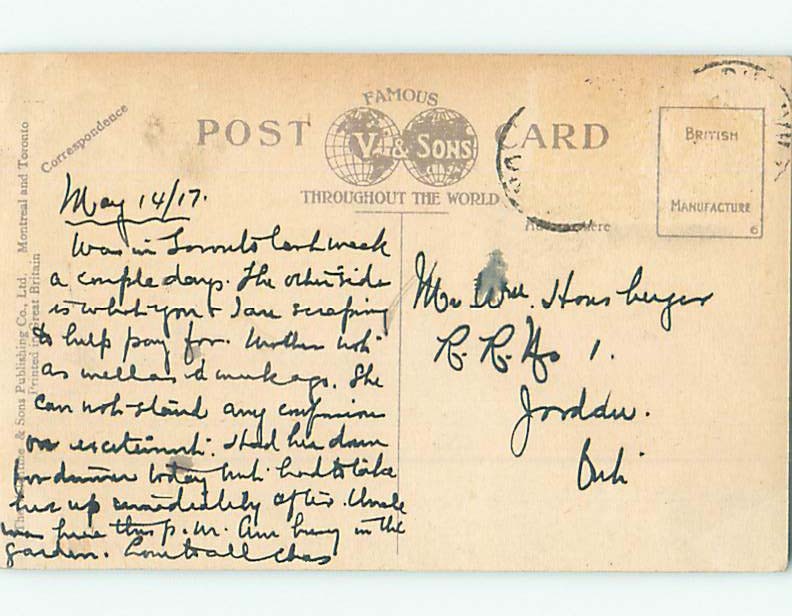 FAMOUS
POST V. & SONS CARD
THROUGHOUT THE WORLD
BRITISH
MANUFACTURE
6
Correspondence
& Sons Publishing Co., Ltd. Montreal and Toronto
Printed in Great Britain
May 14/17.
Was in Toronto last week
a couple days. The other side
is what you & I are scraping
to help pay for. Mother not
as well as a week ago. She
can not stand any confusion
or excitement. Had her down
for dinner today but had to take
her up immediately after. Uncle
was here this p.m. Am busy in the
garden. Love to all Chas
Mr Wm. Honsberger
R. R. No 1.
Jordan.
Ont